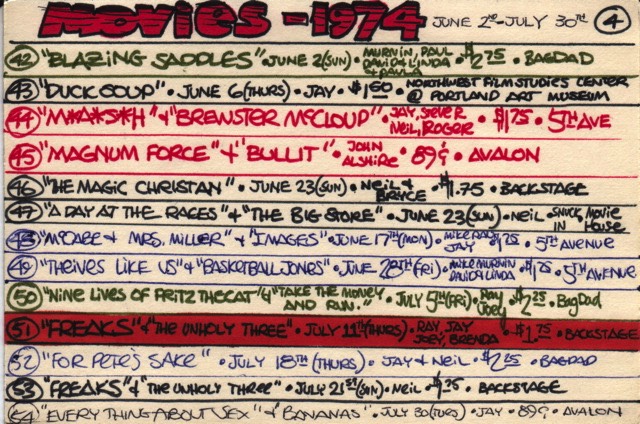 MOVIES - 1974 JUNE 2ND - JULY 30TH 4
42 "BLAZING SADDLES" • JUNE 2 (SUN) • MURNIN, PAUL DAVID & LINDA & PAULA • $2.75 • BAGDAD
43 "DUCK SOUP" • JUNE 6 (THURS) • JAY • $1.50 • NORTHWEST FILM STUDIES CENTER @ PORTLAND ART MUSEUM
44 "M*A*S*H" & "BREWSTER McCLOUD" • JAY, STEVE R NEIL, ROGER • $1.75 • 5TH AVE
45 "MAGNUM FORCE" & "BULLIT" • JOHN ALSHIRE • 89¢ • AVALON
46 "THE MAGIC CHRISTAN" • JUNE 23 (SUN) • NEIL & BRYCE • $1.75 • BACKSTAGE
47 "A DAY AT THE RACES" & "THE BIG STORE" • JUNE 23 (SUN) • NEIL • SNUCK IN • MOVIE HOUSE
48 "McCABE & MRS. MILLER" & "IMAGES" • JUNE 17TH (MON) • MIKE JAY • $1.75 • 5TH AVENUE
49 "THEIVES LIKE US" & "BASKETBALL JONES" • JUNE 28TH (FRI) • MIKE MURNIN DAVID & LINDA • $1.75 • 5TH AVENUE
50 "NINE LIVES OF FRITZ THE CAT" & "TAKE THE MONEY AND RUN." • JULY 5TH (FRI) • RAY JOEY • $2.25 • BAGDAD
51 "FREAKS" & "THE UNHOLY THREE" • JULY 11TH (THURS) • RAY, JAY JOEY, BRENDA • $1.75 • BACKSTAGE
52 "FOR PETE'S SAKE" • JULY 18TH (THURS) • JAY & NEIL • $2.25 • BAGDAD
53 "FREAKS" & "THE UNHOLY THREE" • JULY 21ST (SUN) • NEIL • $1.75 • BACKSTAGE
54 "EVERY THING ABOUT SEX" & "BANANAS" • JULY 30 (TUES) • JAY • 89¢ • AVALON